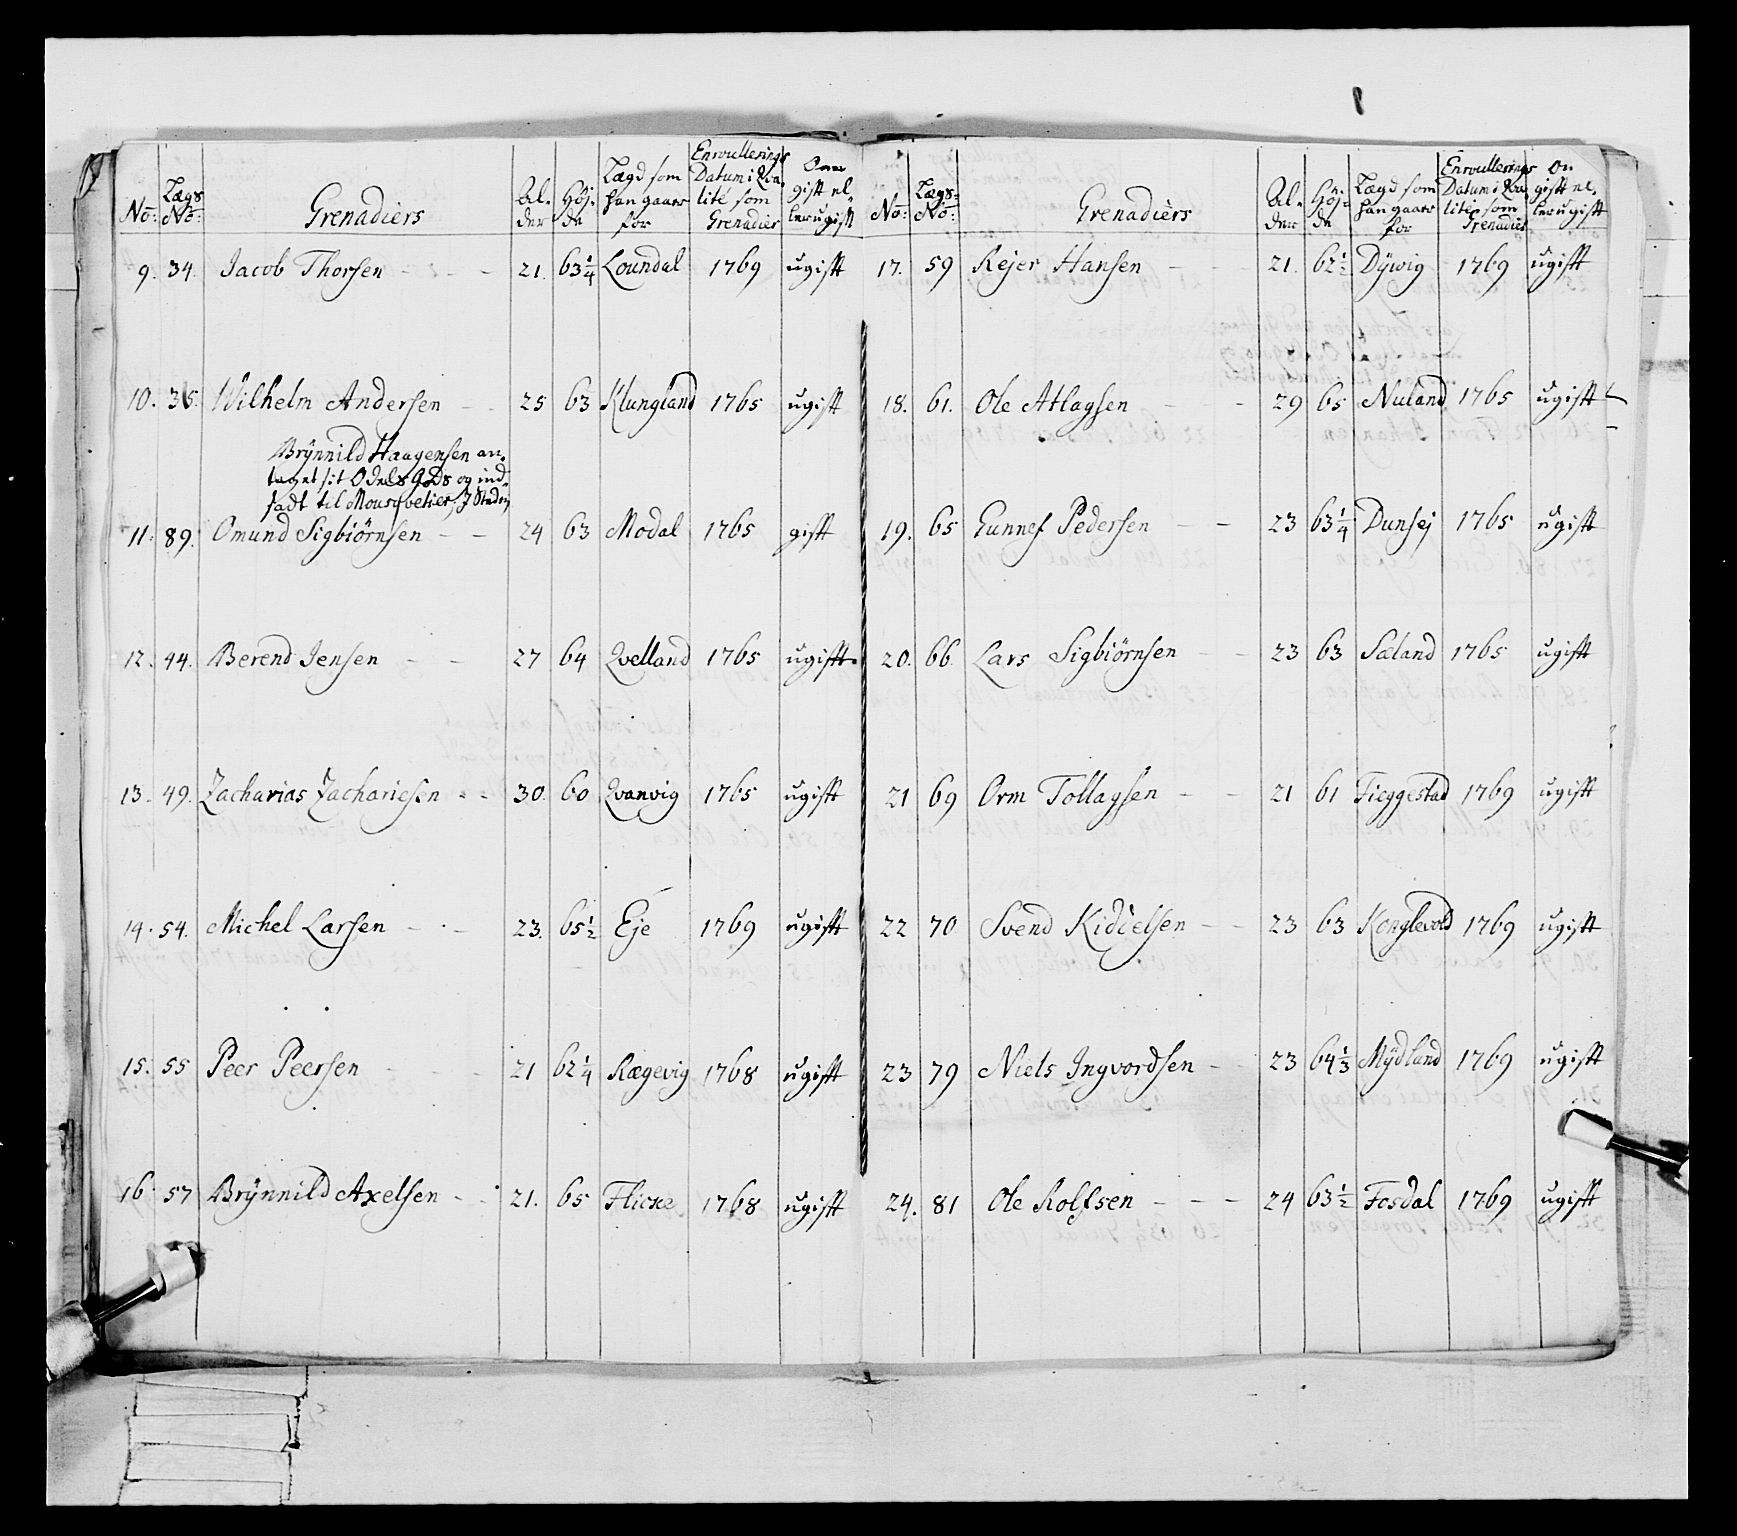 No: Lægs No: Grenadiers Al- der Höj- de Lægd som han gaaer for Enroullerings Datum i Qva- lité som Grenadier Om gift el- ler ugift
9. 34. Jacob Thorsen - - - 21. 63 1/4 Loundal 1769 ugift
10. 35. Wilhelm Andersen - - 25 63 Klungland 1765 ugift
Brÿnnild Haagensen an-
taget sit Odels Gods og ind-
sadt til Mousqvetier, I Steden
11. 89. Omund Sigbiörnsen - - 24 63 Modal 1765 gift
12. 44. Berend Jensen - - 27 64 Qvelland 1765 ugift
13. 49. Zacharias Zachariesen - - 30. 60 Qvanvig 1765 ugift
14. 54. Michel Larsen - - - 23. 65 1/2 Eje 1769 ugift
15. 55 Peer Peersen - - - 21 62 1/4 Rægevig 1768 ugift
16. 57 Brÿnnild Axelsen - - 21. 65 Flicke 1768 ugift
No: Lægs- No: Grenadiers Al- der Höj- de Lægd som han gaaer for Enroullerings Datum i Qva- lité som Grenadier Om gift el- ler ugift
17. 59 Rejer Hansen - - - 21. 62 1/2 Dÿwig 1769 ugift
18. 61. Ole Atlagsen - - 29 65 Nuland 1765 ugift
19. 65 Gunnef Pedersen - - 23 63 1/4 Dunsej 1765 ugift
20. 66. Lars Sigbiörnsen - - 23 63 Sæland 1765 ugift
21 69 Orm Tollagsen - - 21 61 Fieggestad 1769 ugift
22 70 Svend Kidielsen - - 23 63 Konglevold 1769 ugift
23 79 Niels Ingvordsen - - 23 64 1/3 Mÿdland 1769 ugift
24. 81 Ole Rolfsen - - - 24 63 1/2 Fosdal 1769 ugift